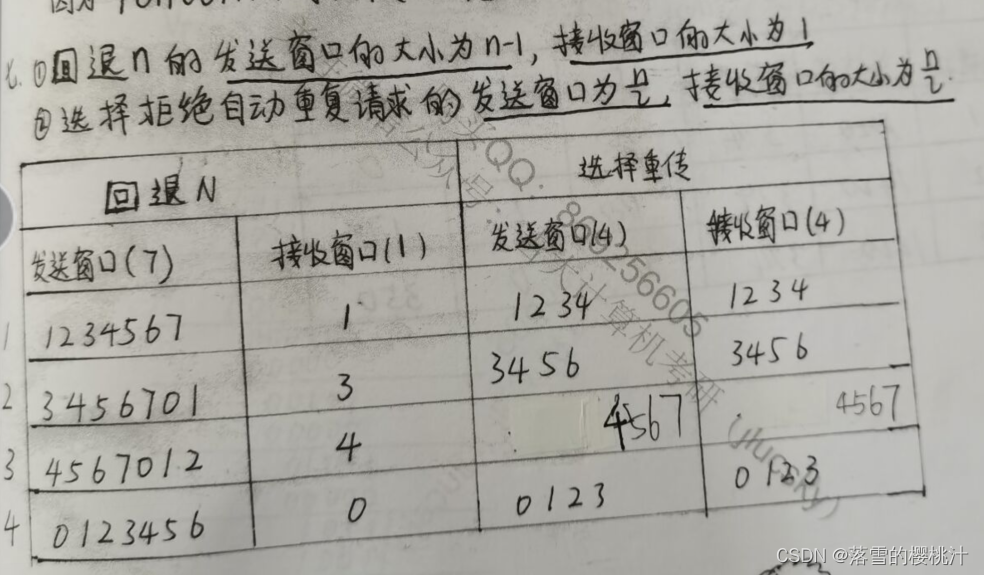 ①回退n的发送窗口的大小为n-1,接收窗口的大小为1
②选择拒绝自动重复请求的发送窗口为n/2,接收窗口的大小为n/2.
回退N 选择重传
发送窗口(7) 接收窗口(1) 发送窗口(4) 接收窗口(4)
1 1234567 1 1234 1234
2 3456701 3 3456 3456
3 4567012 4 4567 4567
4 0123456 0 0123 0123
QQ: 86256605
计算机考研
CSDN @落雪的樱桃汁